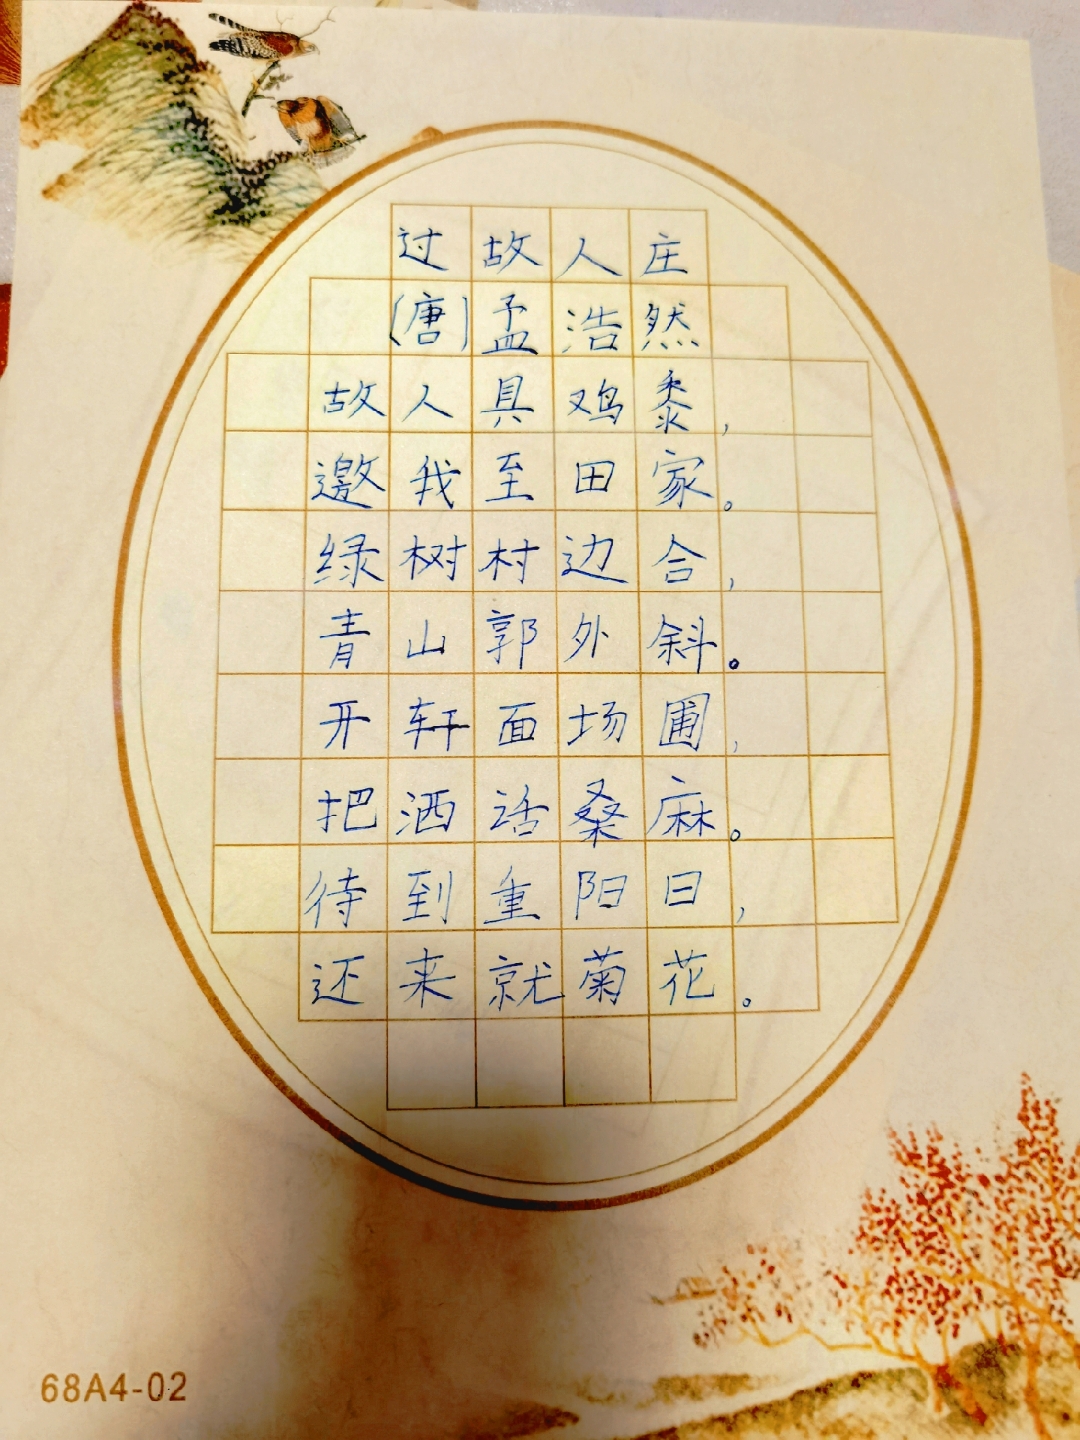 过故人庄
(唐)孟浩然
故人具鸡黍,
邀我至田家。
绿树村边合,
青山郭外斜。
开轩面场圃,
把洒话桑麻。
待到重阳日,
还来就菊花。
68A4-02